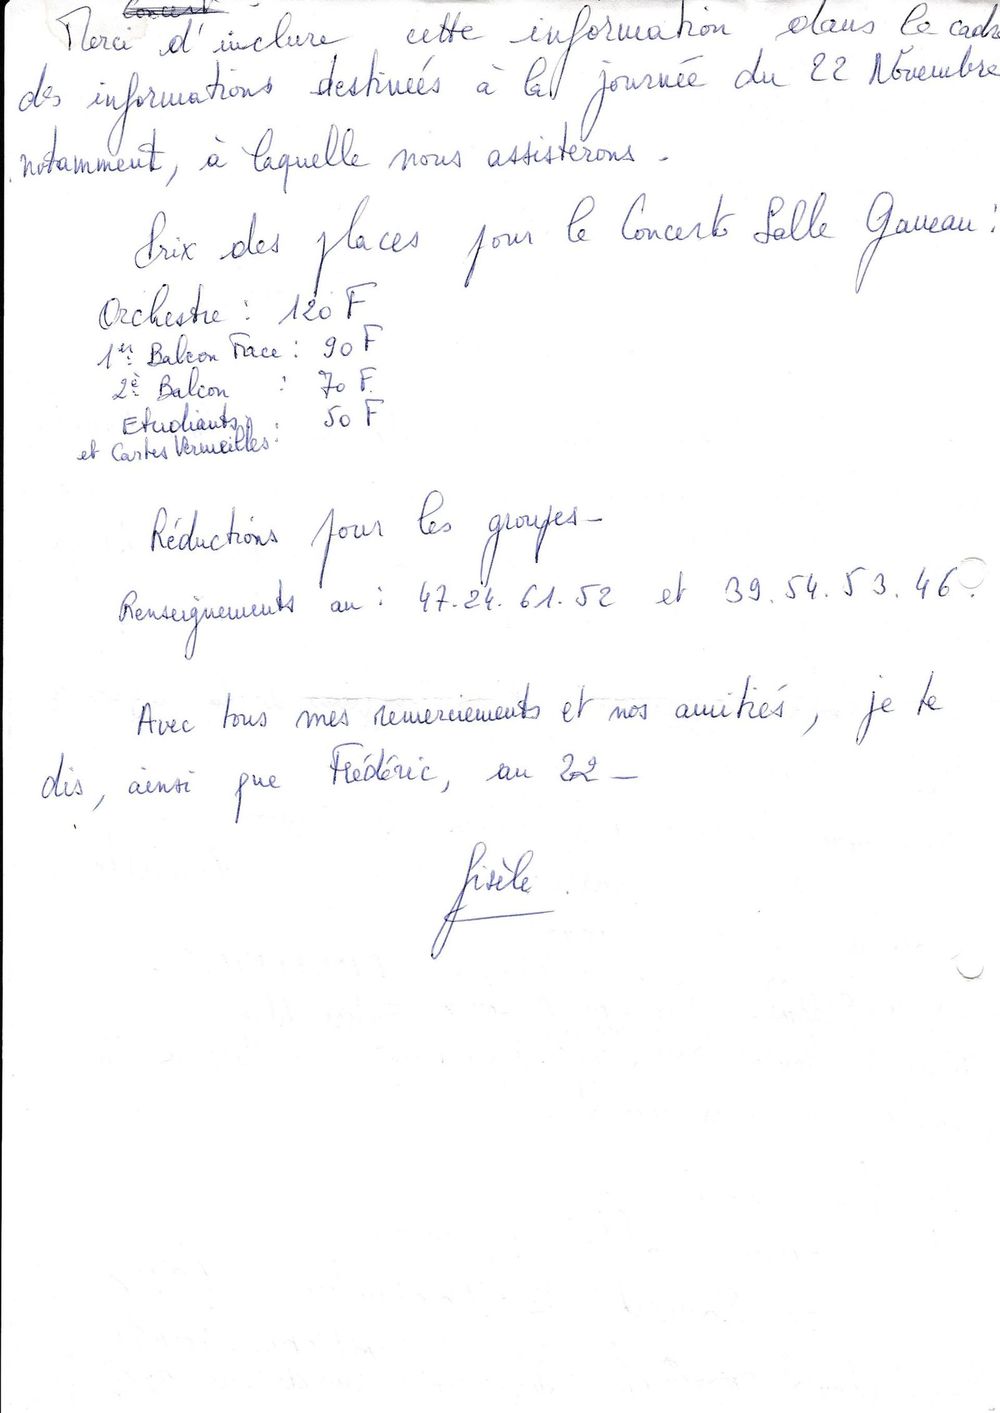 Concert
Merci d'inclure cette information dans le cadre
des informations destinées à la journée du 22 Novembre
notamment, à laquelle nous assisterons.
Prix des places pour le Concert Salle Gaveau :
Orchestre : 120 F
1er Balcon Face : 90 F
2è Balcon : 70 F.
Etudiants 50 F
et Cartes Vermeilles :
Réductions pour les groupes -
Renseignements au : 47.24.61.52 et 39.54.53.46.
Avec tous mes remerciements et nos amitiés, je te
dis, ainsi que Frédéric, au 22 -
Gisèle.